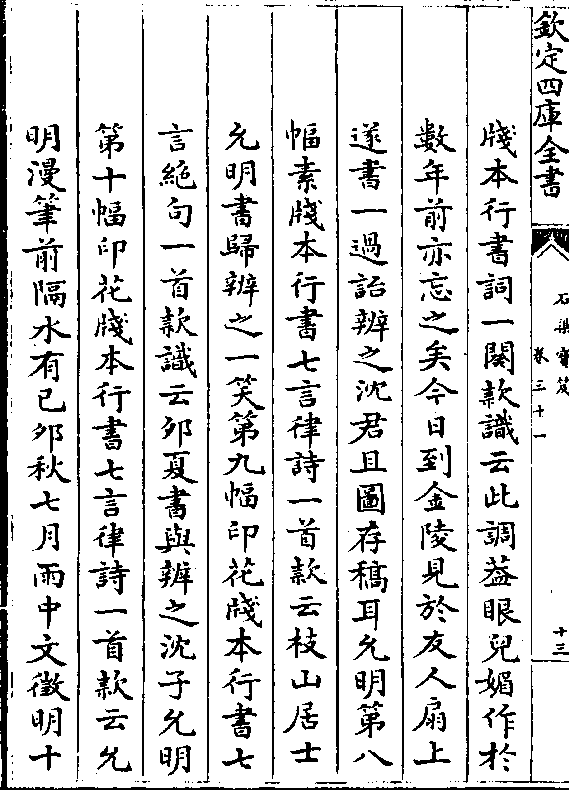 欽定四庫全書
石渠寶笈
卷三十一
十三
牋本行書詞一闋款識云此調葢眼兒媚作於
數年前亦忘之矣今日到金陵見於友人扇上
遂書一過詒辨之沈君且圖存稿耳允明第八
幅素牋本行書七言律詩一首款云枝山居士
允明書歸辨之一笑第九幅印花牋本行書七
言絶句一首款識云夘夏書與辨之沈子允明
第十幅印花牋本行書七言律詩一首款云允
明漫筆前隔水有已夘秋七月雨中文徴明十